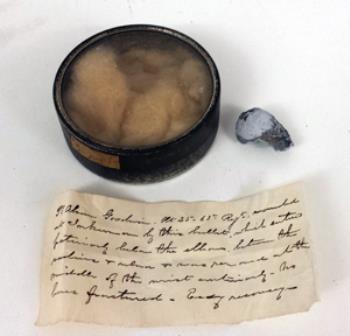 Goodwin Æt 35. 65 Regt. wounded
at Inkerman by this bullet, which entered
posteriorly below the elbow, between the
radius & ulna & was removed at the
middle of the wrist anteriorly - No
bone fractured - Easy recovery -